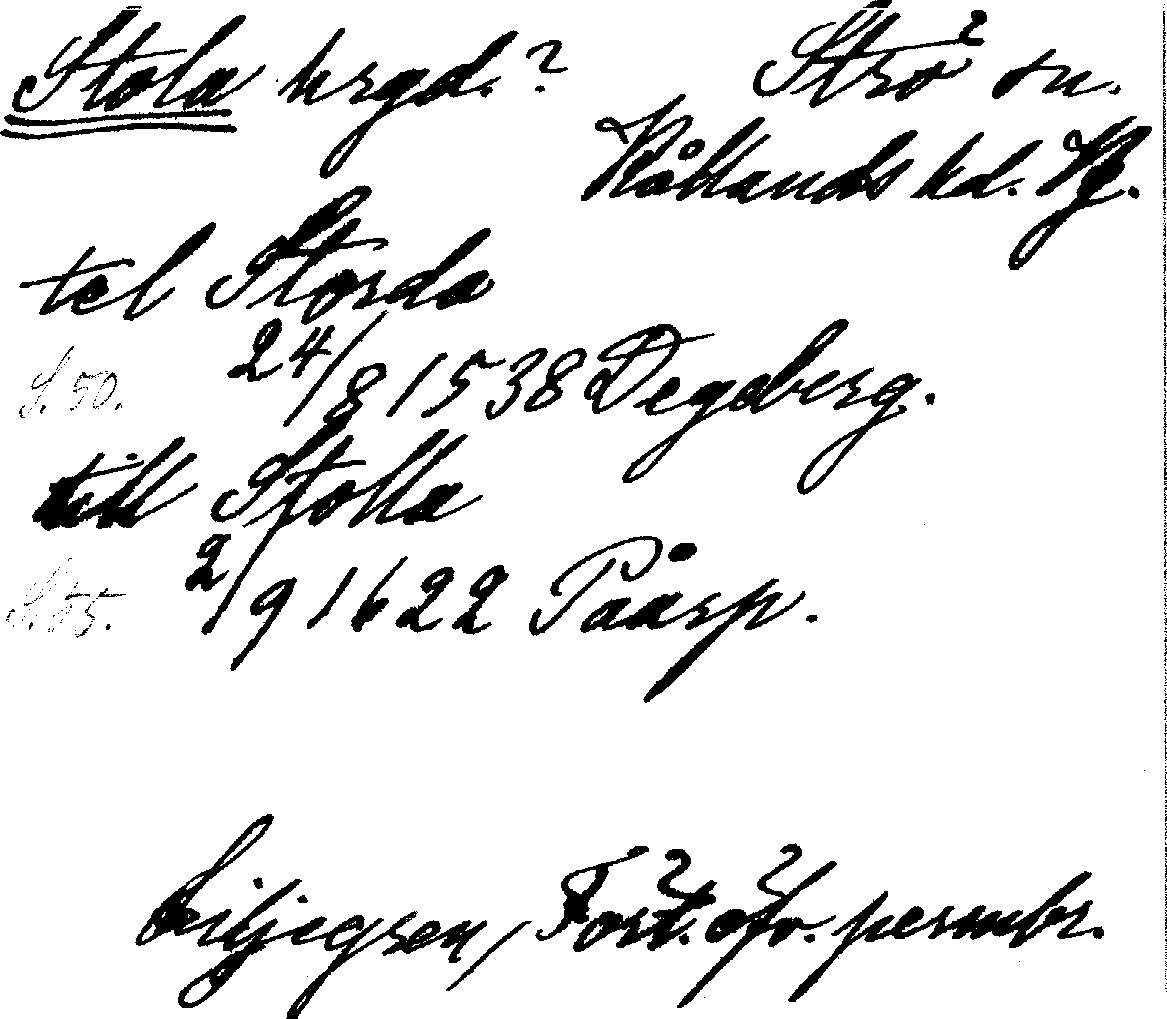 Stola hrgd.? Strö² sn.
Kållands hd. Vg.
tel Storda
S. 50. 24/8 1538 Degeberg.
till Stolla
S. 55. 2/9 1622 Påarp.
Liljegren, Fört. öfv. permbr.